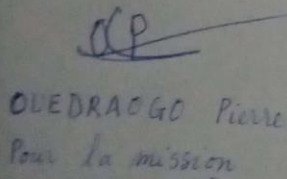 OCP
OUEDRAOGO Pierre
Pour la mission